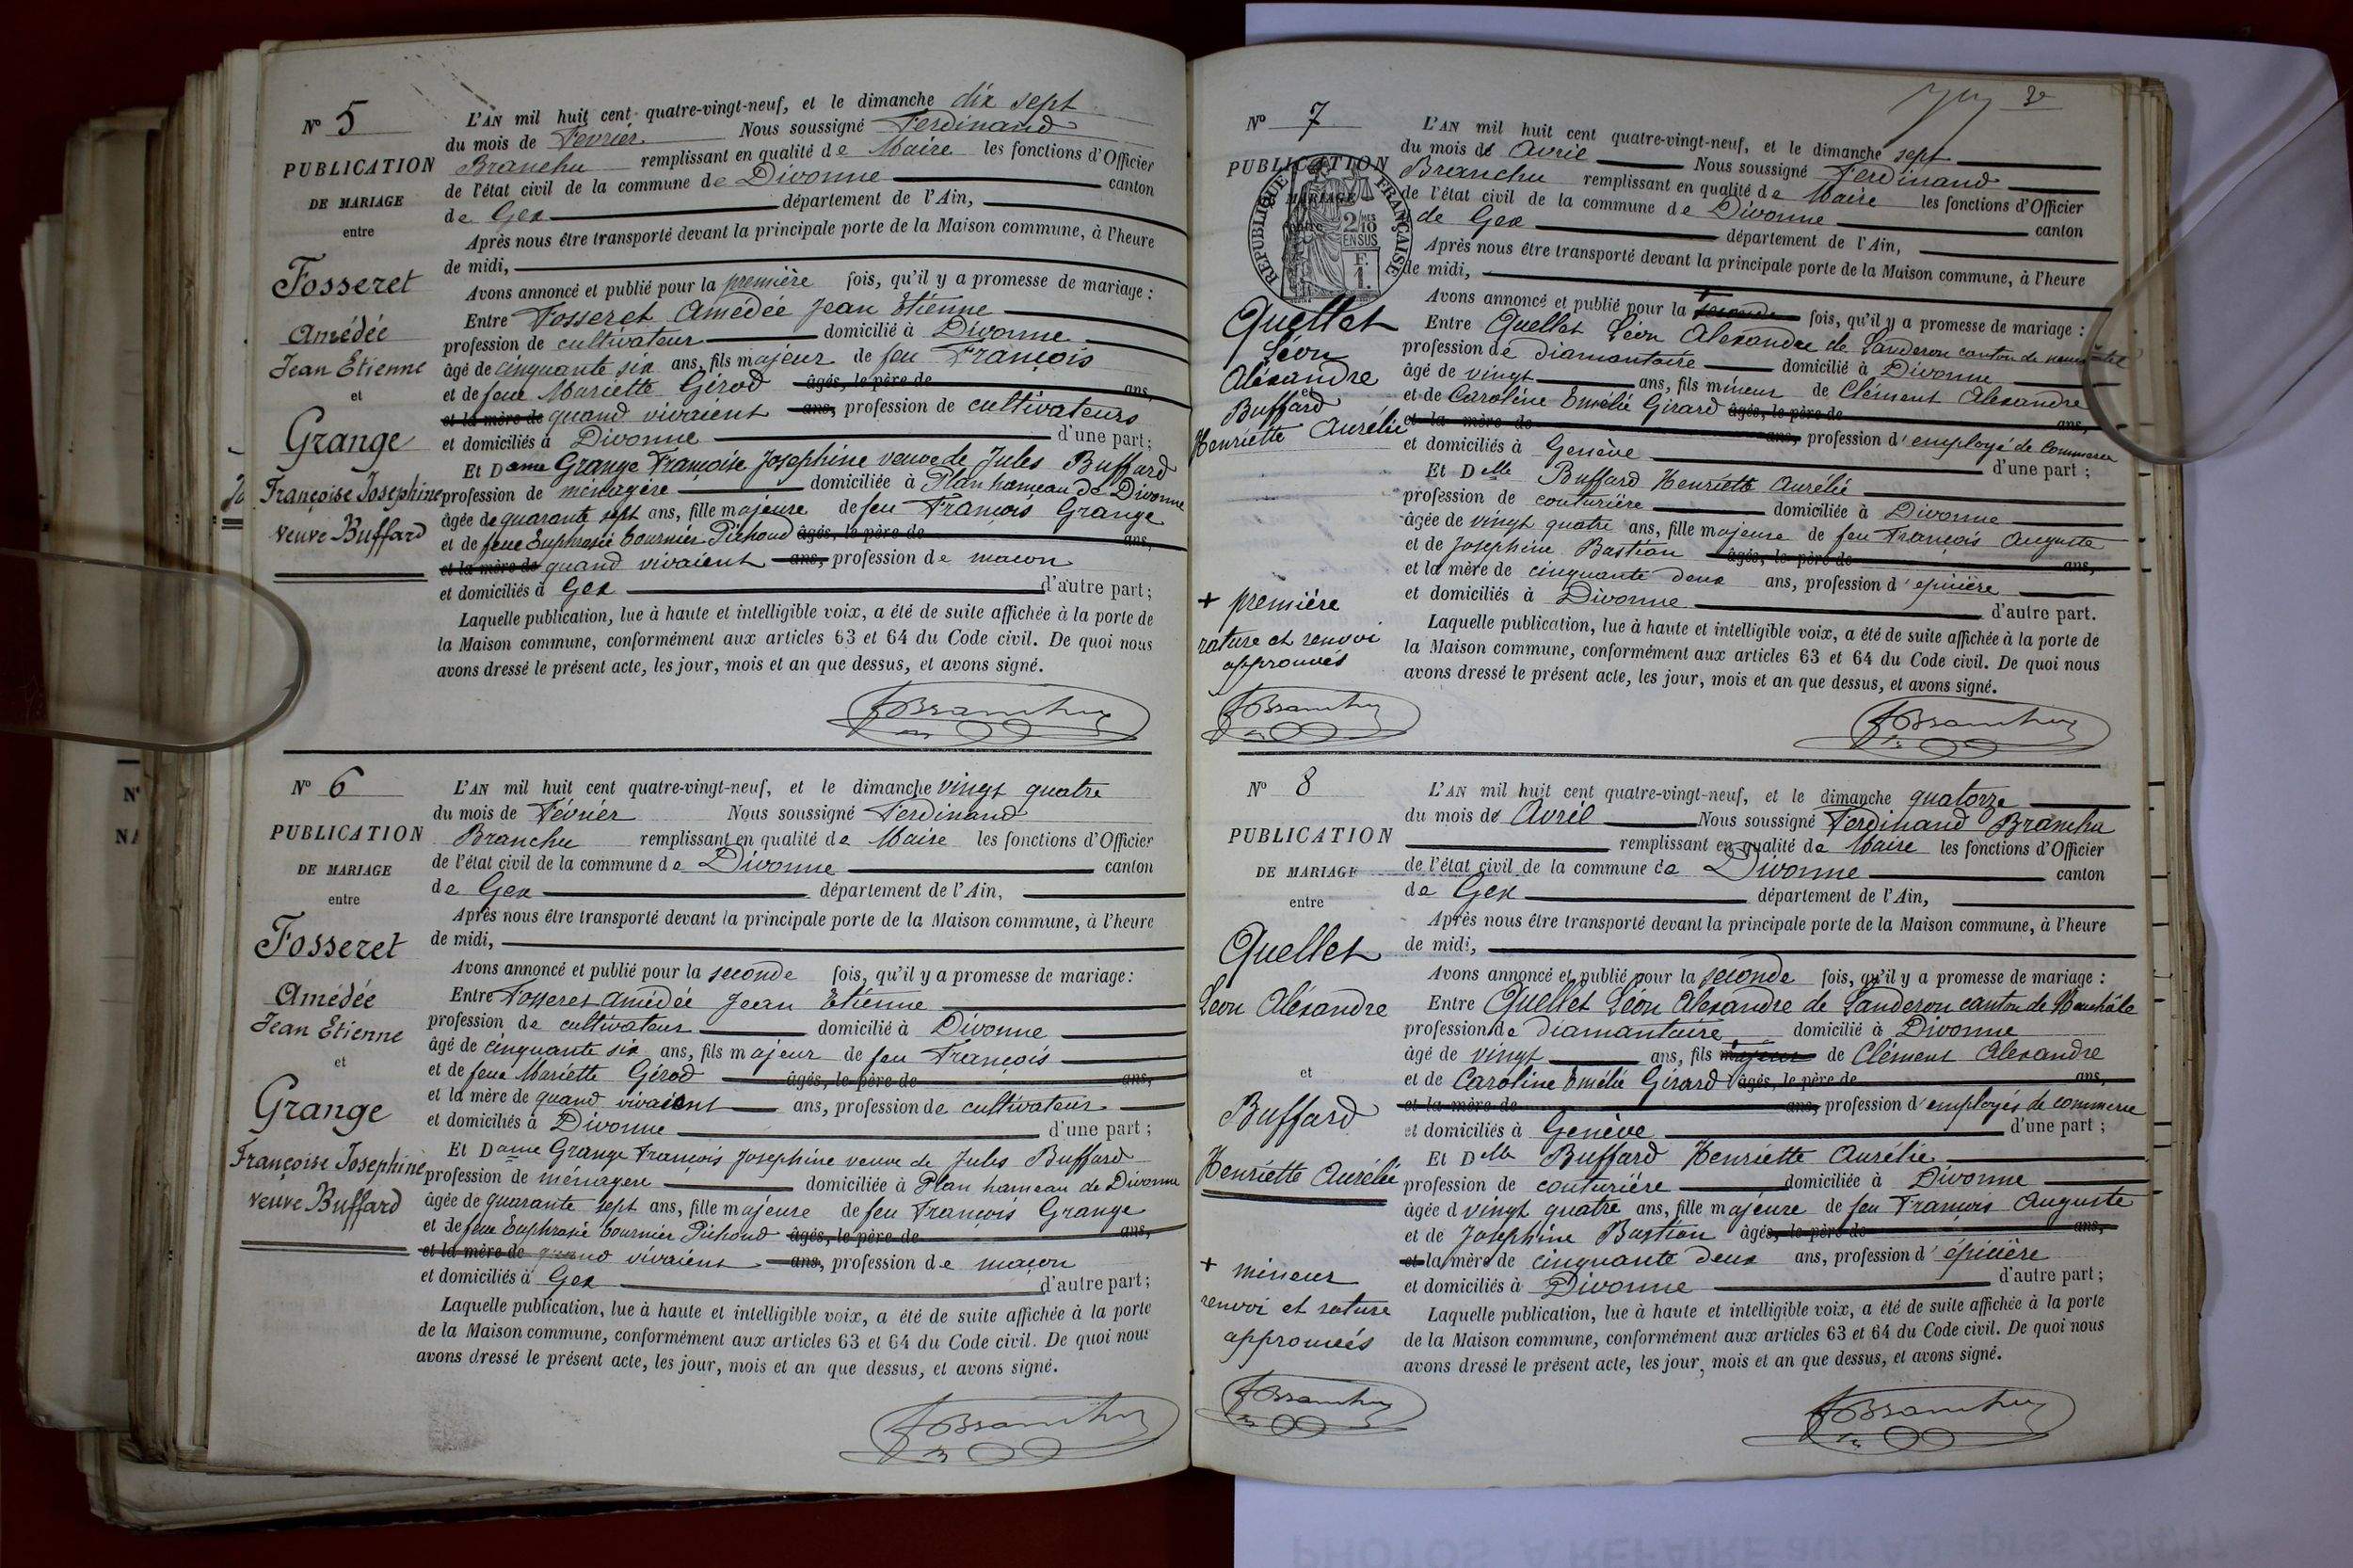 N° 5
PUBLICATION
DE MARIAGE
entre
Fosseret
Amédée
Jean Etienne
et
Grange
Françoise Josephine
veuve Buffard
L'AN mil huit cent quatre-vingt-neuf, et le dimanche dix sept
du mois de Fevrier Nous soussigné Ferdinand
Branchu remplissant en qualité de Maire les fonctions d'Officier
de l'état civil de la commune de Divonne canton
de Gex département de l'Ain,
Après nous être transporté devant la principale porte de la Maison commune, à l'heure
de midi,
Avons annoncé et publié pour la première fois, qu'il y a promesse de mariage :
Entre Fosseret Amédée Jean Etienne
profession de cultivateur domicilié à Divonne
âgé de cinquante six ans, fils majeur de feu François
et de feue Mariette Gérod âgés, le père de ans,
et la mère de quand vivaient ans, profession de cultivateurs
et domiciliés à Divonne d'une part;
Et Dame Grange Françoise Josephine veuve de Jules Buffard
profession de ménagère domiciliée à Plan hameau de Divonne
âgée de quarante sept ans, fille majeure de feu François Grange
et de feue Euphrosie Cournier Pichoud âgés, le père de ans,
et la mère de quand vivaient ans, profession de macon
et domiciliés à Gex d'autre part;
Laquelle publication, lue à haute et intelligible voix, a été de suite affichée à la porte de
la Maison commune, conformément aux articles 63 et 64 du Code civil. De quoi nous
avons dressé le présent acte, les jour, mois et an que dessus, et avons signé.
F Branchu
N° 6
PUBLICATION
DE MARIAGE
entre
Fosseret
Amédée
Jean Etienne
et
Grange
Françoise Josephine
veuve Buffard
L'AN mil huit cent quatre-vingt-neuf, et le dimanche vingt quatre
du mois de Février Nous soussigné Ferdinand
Branchu remplissant en qualité de Maire les fonctions d'Officier
de l'état civil de la commune de Divonne canton
de Gex département de l'Ain,
Après nous être transporté devant la principale porte de la Maison commune, à l'heure
de midi,
Avons annoncé et publié pour la seconde fois, qu'il y a promesse de mariage:
Entre Fosseret Amédée Jean Etienne
profession de cultivateur domicilié à Divonne
âgé de cinquante six ans, fils majeur de feu François
et de feue Mariette Gérod âgés, le père de ans,
et la mère de quand vivaient ans, profession de cultivateur
et domiciliés à Divonne d'une part;
Et Dame Grange François Josephine veuve de Jules Buffard
profession de ménagere domiciliée à Plan hameau de Divonne
âgée de quarante sept ans, fille majeure de feu François Grange
et de feue Euphrosie Cournier Pichoud âgés, le père de ans,
et la mère de quand vivaient ans, profession de maçon
et domiciliés à Gex d'autre part;
Laquelle publication, lue à haute et intelligible voix, a été de suite affichée à la porte
de la Maison commune, conformément aux articles 63 et 64 du Code civil. De quoi nous
avons dressé le présent acte, les jour, mois et an que dessus, et avons signé.
F Branchu
N° 7
PUBLICATION
DE MARIAGE
entre
REPUBLIQUE FRANÇAISE
2/10
EN SUS
F.
1.
Quellet
Léon
Aléxandre
et
Buffard
Henriette Aurélie
+ première
rature et renvoi
approuvés
F Branchu
L'AN mil huit cent quatre-vingt-neuf, et le dimanche sept
du mois de Avril Nous soussigné Ferdinand
Branchu remplissant en qualité de Maire les fonctions d'Officier
de l'état civil de la commune de Divonne canton
de Gex département de l'Ain,
Après nous être transporté devant la principale porte de la Maison commune, à l'heure
de midi,
Avons annoncé et publié pour la + seconde fois, qu'il y a promesse de mariage :
Entre Quellet Léon Alexandre de Landeron canton de neuchâtel
profession de diamantaire domicilié à Divonne
âgé de vingt ans, fils mineur de Clément Alexandre
et de Caroline Emélie Girard âgés, le père de ans,
et la mère de ans, profession d'employé de commerce
et domiciliés à Genève d'une part;
Et Delle Buffard Henriette Aurélie
profession de couturière domiciliée à Divonne
âgée de vingt quatre ans, fille majeure de feu François Auguste
et de Josephine Bastian âgés, le père de ans,
et la mère de cinquante deux ans, profession d'épicière
et domiciliés à Divonne d'autre part.
Laquelle publication, lue à haute et intelligible voix, a été de suite affichée à la porte de
la Maison commune, conformément aux articles 63 et 64 du Code civil. De quoi nous
avons dressé le présent acte, les jour, mois et an que dessus, et avons signé.
F Branchu
N° 8
PUBLICATION
DE MARIAGE
entre
Quellet
Léon Aléxandre
et
Buffard
Henriette Aurélie
+ mineur
renvoi et rature
approuvés
F Branchu
L'AN mil huit cent quatre-vingt-neuf, et le dimanche quatorze
du mois de Avril Nous soussigné Ferdinand Branchu
remplissant en qualité de Maire les fonctions d'Officier
de l'état civil de la commune de Divonne canton
de Gex département de l'Ain,
Après nous être transporté devant la principale porte de la Maison commune, à l'heure
de midi,
Avons annoncé et publié pour la seconde fois, qu'il y a promesse de mariage :
Entre Quellet Léon Alexandre de Landeron canton de Neuchâtel
profession de diamantaire domicilié à Divonne
âgé de vingt ans, fils majeur de Clément Alexandre
et de Caroline Emélie Girard âgés, le père de ans,
et la mère de ans, profession d'employés de commerce
et domiciliés à Genève d'une part;
Et Delle Buffard Henriette Aurélie
profession de couturière domiciliée à Divonne
âgée d vingt quatre ans, fille majeure de feu François Auguste
et de Josephine Bastian âgés, le père de ans,
et la mère de cinquante deux ans, profession d'épicière
et domiciliés à Divonne d'autre part;
Laquelle publication, lue à haute et intelligible voix, a été de suite affichée à la porte
de la Maison commune, conformément aux articles 63 et 64 du Code civil. De quoi nous
avons dressé le présent acte, les jour, mois et an que dessus, et avons signé.
F Branchu